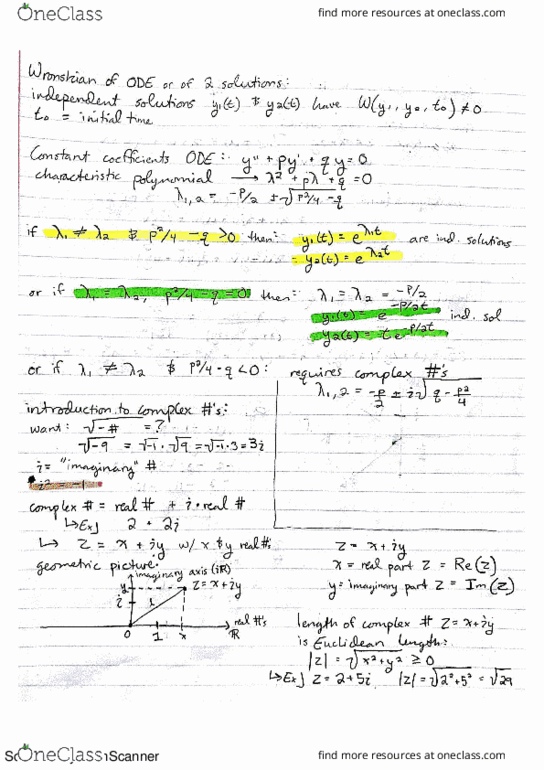 OneClass
find more resources at oneclass.com
Wronskian of ODE or of 2 solutions:
independent solutions y₁(t) & y₂(t) have W(y₁, y₀, t₀) ≠ 0
t₀ = initial time
Constant coefficients ODE: y'' + py' + qy = 0
characteristic polynomial → λ² + pλ + q = 0
λ₁,₂ = -P/2 ± √(P²/4 - q)
if λ₁ ≠ λ₂ & P²/4 - q > 0 then: y₁(t) = e^λ₁t are ind. solutions
= y₂(t) = e^λ₂t
or if λ₁ = λ₂, P²/4 - q = 0 then: λ₁ = λ₂ = -P/2
y₁(t) = e^-P/2t ind. sol
y₂(t) = te^-P/2t
or if λ₁ ≠ λ₂ & P²/4 - q < 0: requires complex #'s
λ₁,₂ = -P/2 ± i√(q - P²/4)
introduction to complex #'s:
want: √-# = ?
√-9 = √-1 · √9 = √-1 · 3 = 3i
i = "imaginary" #
i² = -1
complex # = real # + i · real #
↳ Ex] 2 + 2i
↳ Z = x + iy w/ x & y real #s
geometric picture:
imaginary axis (iR)
y
Z = x + iy
i
0 1 x
real #'s
R
Z = x + iy
x = real part Z = Re(Z)
y = imaginary part Z = Im(Z)
length of complex # Z = x + iy
is Euclidean length:
|Z| = √(x² + y²) ≥ 0
↳ Ex] Z = 2 + 5i |Z| = √(2² + 5²) = √29
OneClass
Scanner
find more resources at oneclass.com